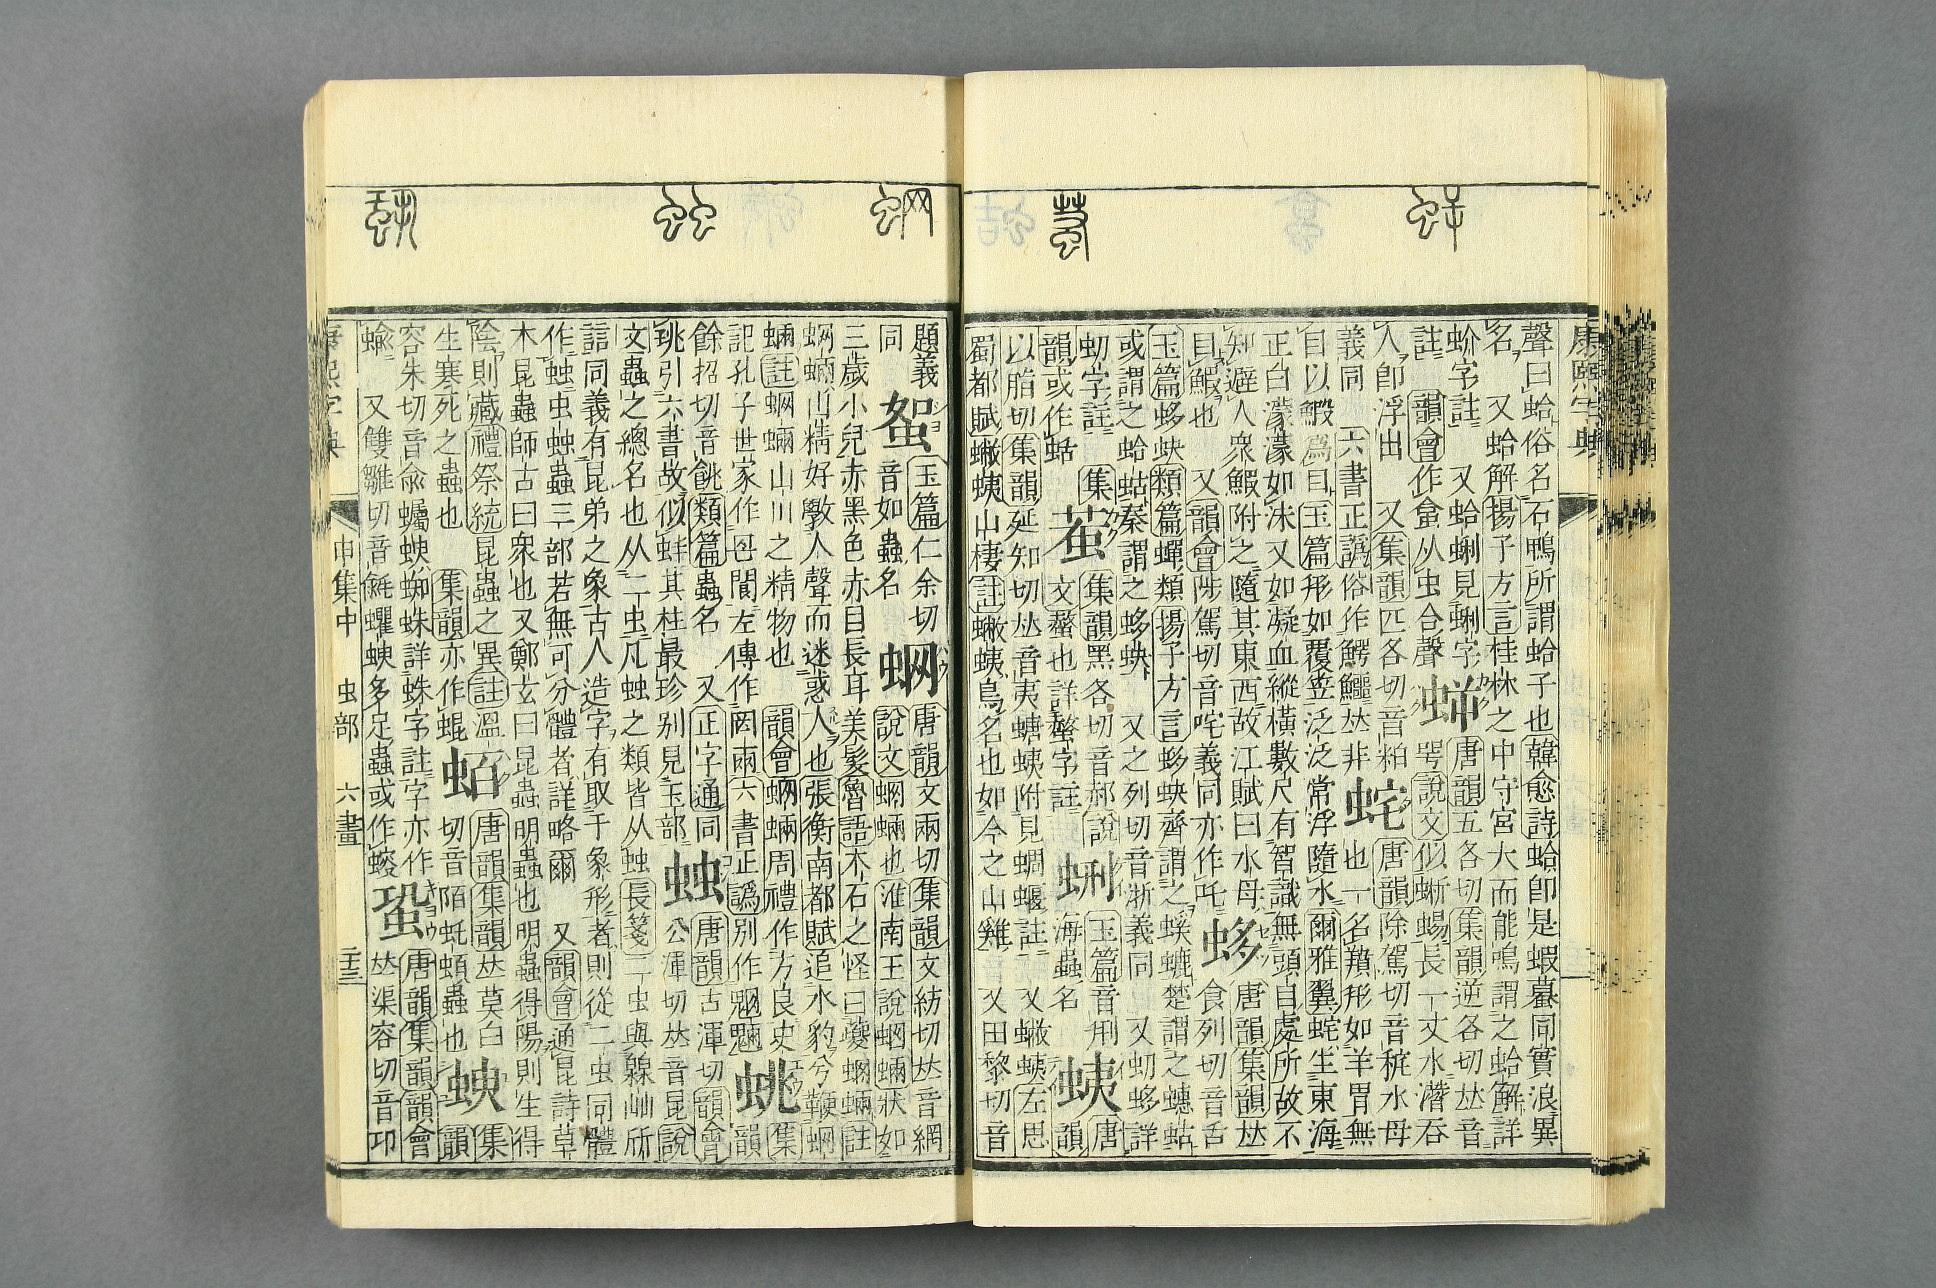 康熙字典
聲曰蛤俗名石鴨所謂蛤子也韓愈詩蛤卽是蝦蟇同實浪異
名 又蛤解揚子方言桂林之中守宮大而能鳴謂之蛤解詳
蚧字註 又蛤蜊見蜊字 唐韻五各切集韻逆各切𠀤音
註 韻會作蛿从虫合聲 咢說文似蜥蜴長一丈水潛吞
人卽浮出 又集韻匹各切音粕 䖳 唐韻除駕切音䄍水母
義同 六書正譌俗作鰐鱷𠀤非 也一名羵形如羊胃無
目以鰕爲目玉篇形如覆笠泛泛常浮隨水爾雅翼䖳生東海
正白濛濛如沫又如凝血縱橫數尺有智識無頭目處所故不
知避人衆鰕附之隨其東西故江賦曰水母 蛥 唐韻集韻𠀤
目鰕也 又韻會陟駕切音咤義同亦作吒 食列切音舌
玉篇蛥蚗類篇蟬類揚子方言蛥蚗齊謂之螇螰楚謂之蟪蛄
或謂之蛉蛄秦謂之蛥蚗 又之列切音浙義同 又 蛥詳
字註 集 集韻黑各切音郝說 玉篇音刑 蛦 唐
韻或作蛞 文螫也詳螫字註 海蟲名 韻
以脂切集韻延知切𠀤音夷螗蛦附見蜩蝘註 又 蛦左思
蜀都賦 蛦山棲註 蛦鳥名也如今之山雞 又田黎切音
題義 玉篇仁余切 唐韻文兩切集韻文紡切𠀤音網
同 音如蟲名 蛧 說文蛧蜽也淮南王說蛧蜽狀如
三歲小兒赤黑色赤目長耳美髮魯語木石之怪曰夔蛧蜽註
蛧蜽山精好斆人聲而迷惑人也張衡南都賦追水豹兮鞭蛧
蜽註蛧蜽山川之精物也 韻會蛧蜽周禮作方良史 䖴 集
記孔子世家作罔閬左傳作罔兩六書正譌別作魍魎 韻
餘招切音 類篇蟲名 又正字通同 䖵 唐韻古渾切韻會
珧引六書故似蚌其柱最珍 別見玉部 公渾切𠀤音昆說
文蟲之總名也从二虫凡䖵之類皆从䖵長箋二虫與 屾㸚
誩同義有昆弟之象古人造字有取于象形者則從二虫同體
作䖵虫䖵蟲三部若無可分體者詳略爾 又韻會通昆詩草
木昆蟲師古曰衆也又鄭玄曰昆蟲明蟲也明蟲得陽則生得
陰則藏禮祭統昆蟲之異註溫 唐韻集韻𠀤莫白 集
生寒死之蟲也 集韻亦作蜫 蛨 切音陌虴蛨蟲也 蛈 韻
容朱切音兪蠾蝓蜘蛛詳蛛字註字亦作 蛩 唐韻集韻韻會
蝓 又雙雛切音 多足蟲或作 𠀤渠容切音卭
康熙字典 申集中 虫部 六畫 二十三